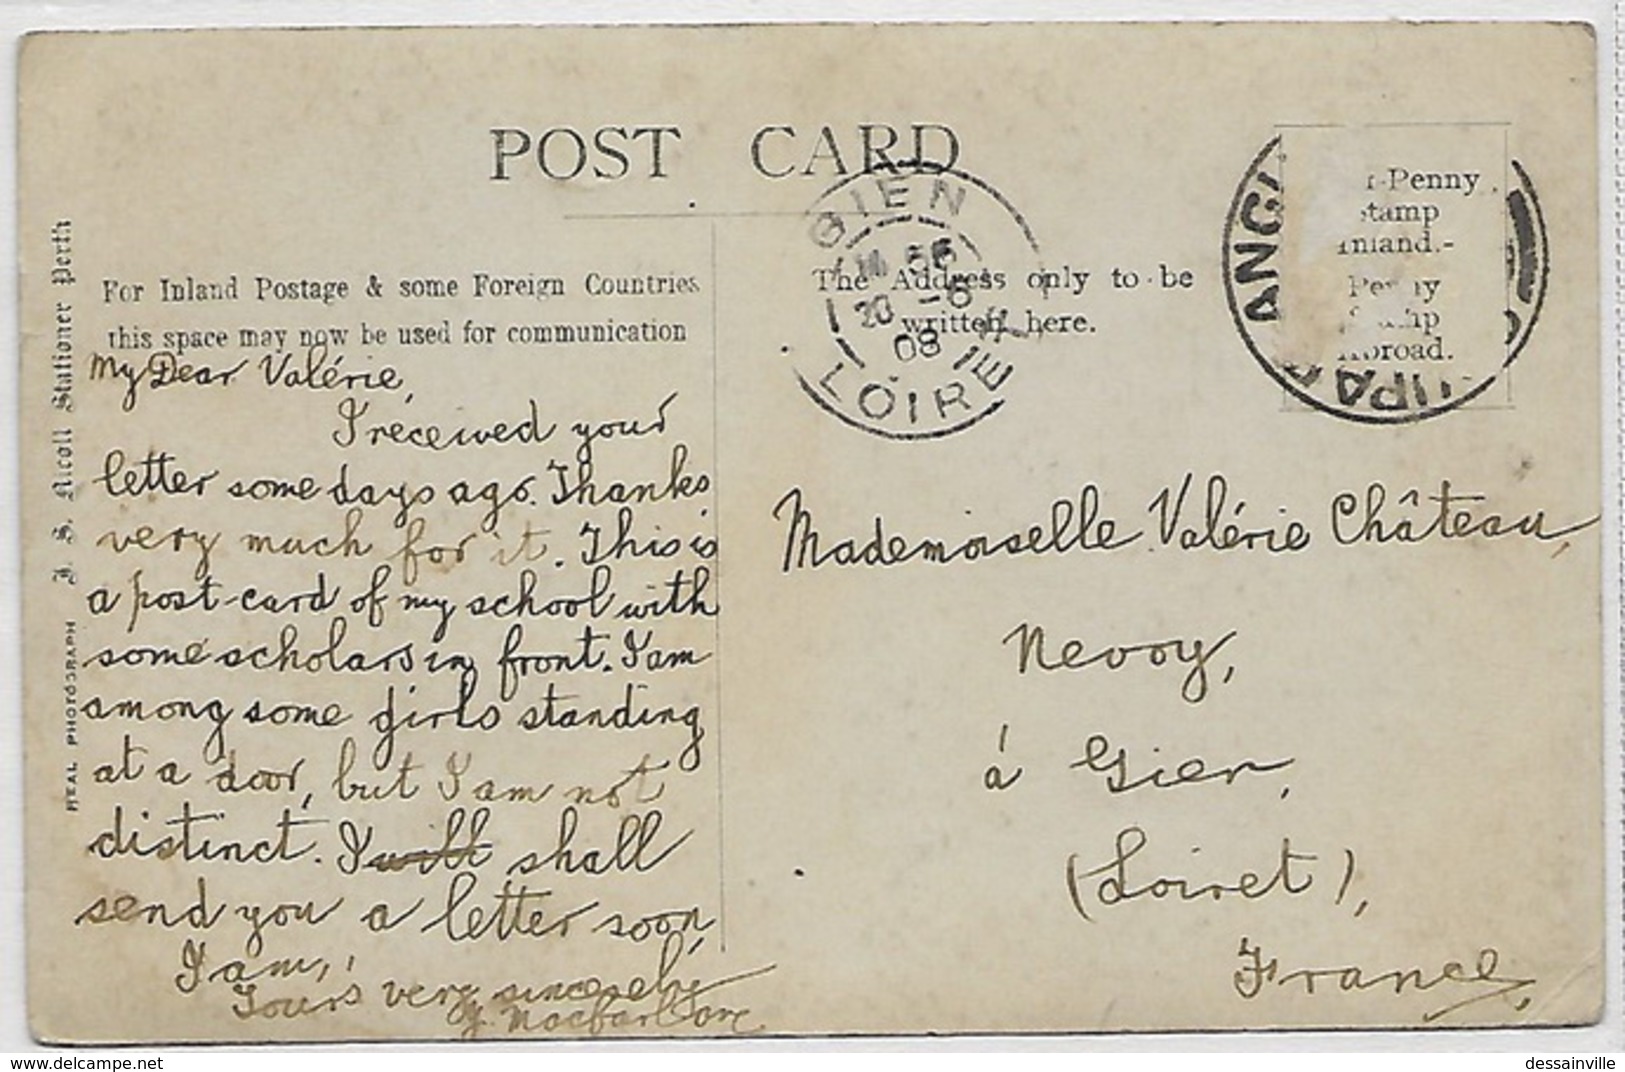 POST CARD
REAL PHOTOGRAPH J. S. Nicoll Stationer Perth
For Inland Postage & some Foreign Countries
this space may now be used for communication
The Address only to be
written here.
GIEN
20 -6
08
LOIRET
-Penny
tamp
nland.-
broad.
ANGL
My Dear Valérie,
I received your
letter some days ago. Thanks
very much for it. This is
a post-card of my school with
some scholars in front. I am
among some girls standing
at a door, but I am not
distinct. I will shall
send you a letter soon,
I am,
Yours very sincerely
Macfarlane
Mademoiselle Valérie Château,
Nevoy,
à Gien,
(Loiret),
France,
www.delcampe.net
dessainville